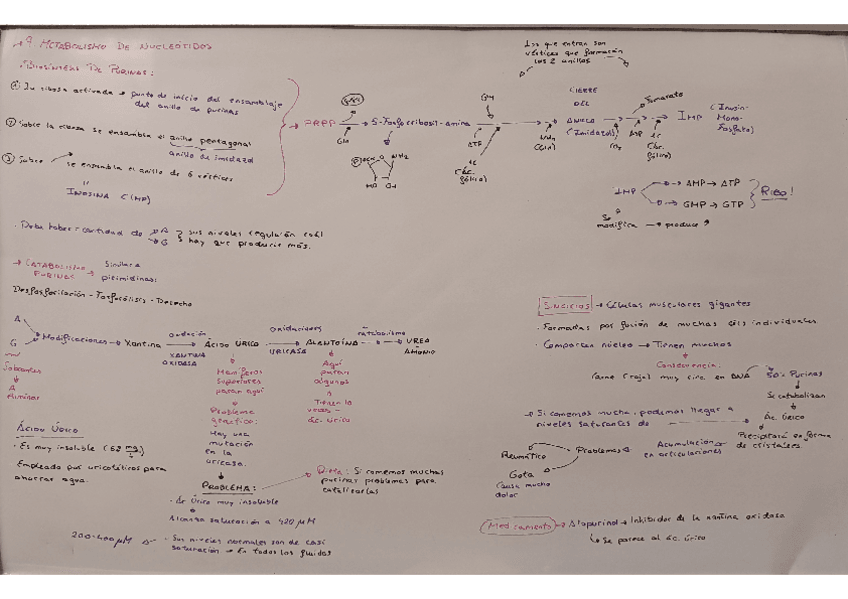 → 9 METABOLISMO DE NUCLEÓTIDOS
BIOSÍNTESIS DE PURINAS:
① Su ribosa activada → punto de inicio del ensamblaje
del anillo de purinas
② Sobre la ribosa se ensambla el anillo pentagonal
anillo de imidazol
③ Sobre se ensambla el anillo de 6 vértices
INOSINA (IMP)
→ PRPP → 5-Fosforribosil-amina
Gln
NH₂
Los que entran son
vértices que formarán
los 2 anillos
Gly
ATP
(Ác.
fólico)
CIERRE
DEL
ANILLO
(Imidazol)
NH₂
(Gln)
CO₂
Fumarato
(Ác.
fólico)
IMP
(Inosin-
Mono-
fosfato)
IMP
→ AMP → ATP
→ GMP → GTP
RIBO!
Se
modifica → produce
• Debe haber = cantidad de A
G
sus niveles regulan cuál
hay que producir más.
→ CATABOLISMO
PURINAS
→ Similar a
pirimidinas:
Desfosforilación - Fosforólisis - Desecho
A
G
Sobrantes
A
eliminar
Modificaciones → Xantina
oxidación
XANTINA
OXIDASA
ÁCIDO ÚRICO
oxidaciones
URICASA
ALANTOÍNA
metabolismo
UREA
AMONIO
Mamíferos
superiores
paran aquí
Problema
genético:
Hay una
mutación
en la
uricasa.
Aquí
paran
algunos
Tienen la
ÁCIDO ÚRICO
• Es muy insoluble
Empleado por uricotélicos para
ahorrar agua.
PROBLEMA:
• Ác úrico muy insoluble
Alcanza saturación a 420 μM
200-400 μM
• Sus niveles normales son de casi
saturación → En todos los fluidos
Dieta: Si comemos muchas
purinas problemas para
catabolizarlas
SINCICIOS → Células musculares gigantes
• Formadas por fusión de muchas céls individuales
• Comparten núcleo → Tienen muchos
Consecuencia:
Carne (roja) muy rica en DNA
50% Purinas
Se catabolizan
Ác. Úrico
• Si comemos mucha, podemos llegar a
niveles saturantes de
Precipitará en forma
de cristales.
Acumulación
en articulaciones
Problemas
Reumático
Gota
Causa mucho
dolor
Medicamento → Alopurinol → Inhibidor de la xantina oxidasa
↳ Se parece al ác. úrico